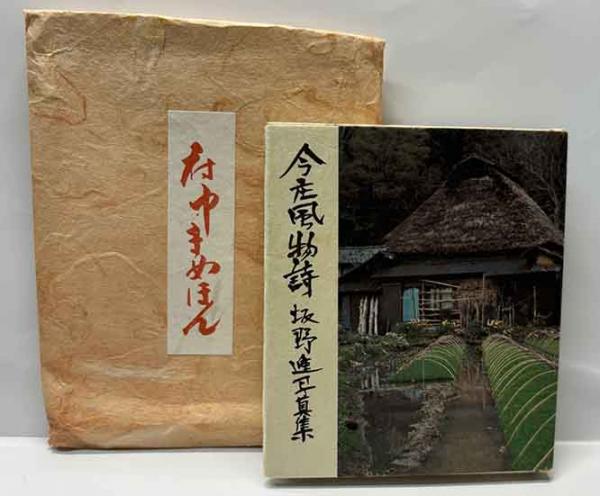 府中まめほん
今庄風物詩 坂野進写真集